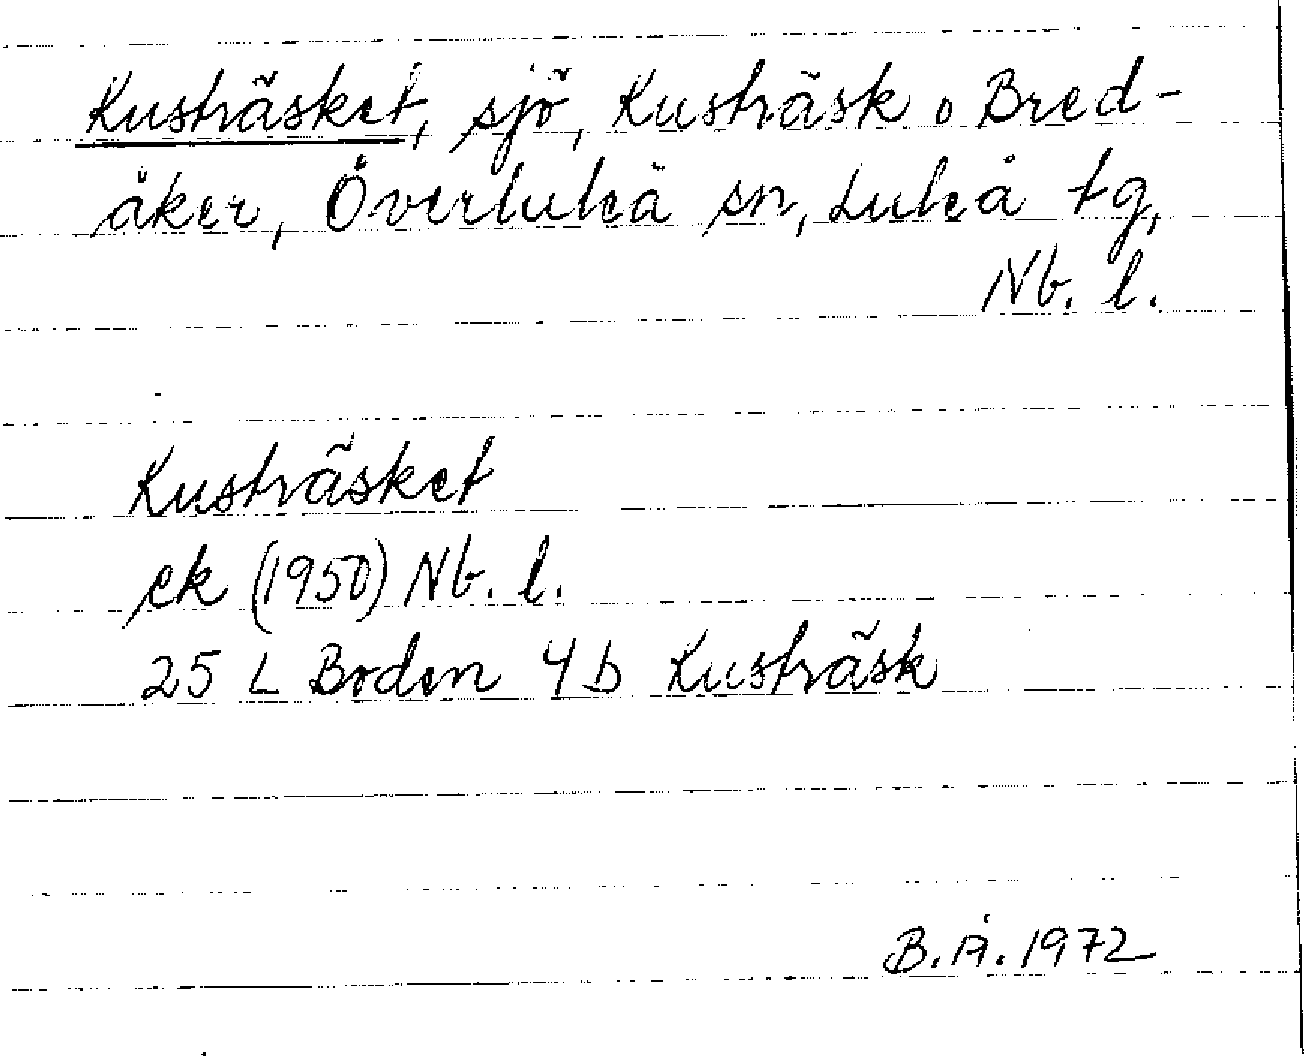 Kusträsket, sjö, Kusträsk o Bred-
åker, Överluleå sn, Luleå tg,
Nb. l.
Kusträsket
ek (1950) Nb. l.
25 L Boden 4b Kusträsk
B.Å. 1972